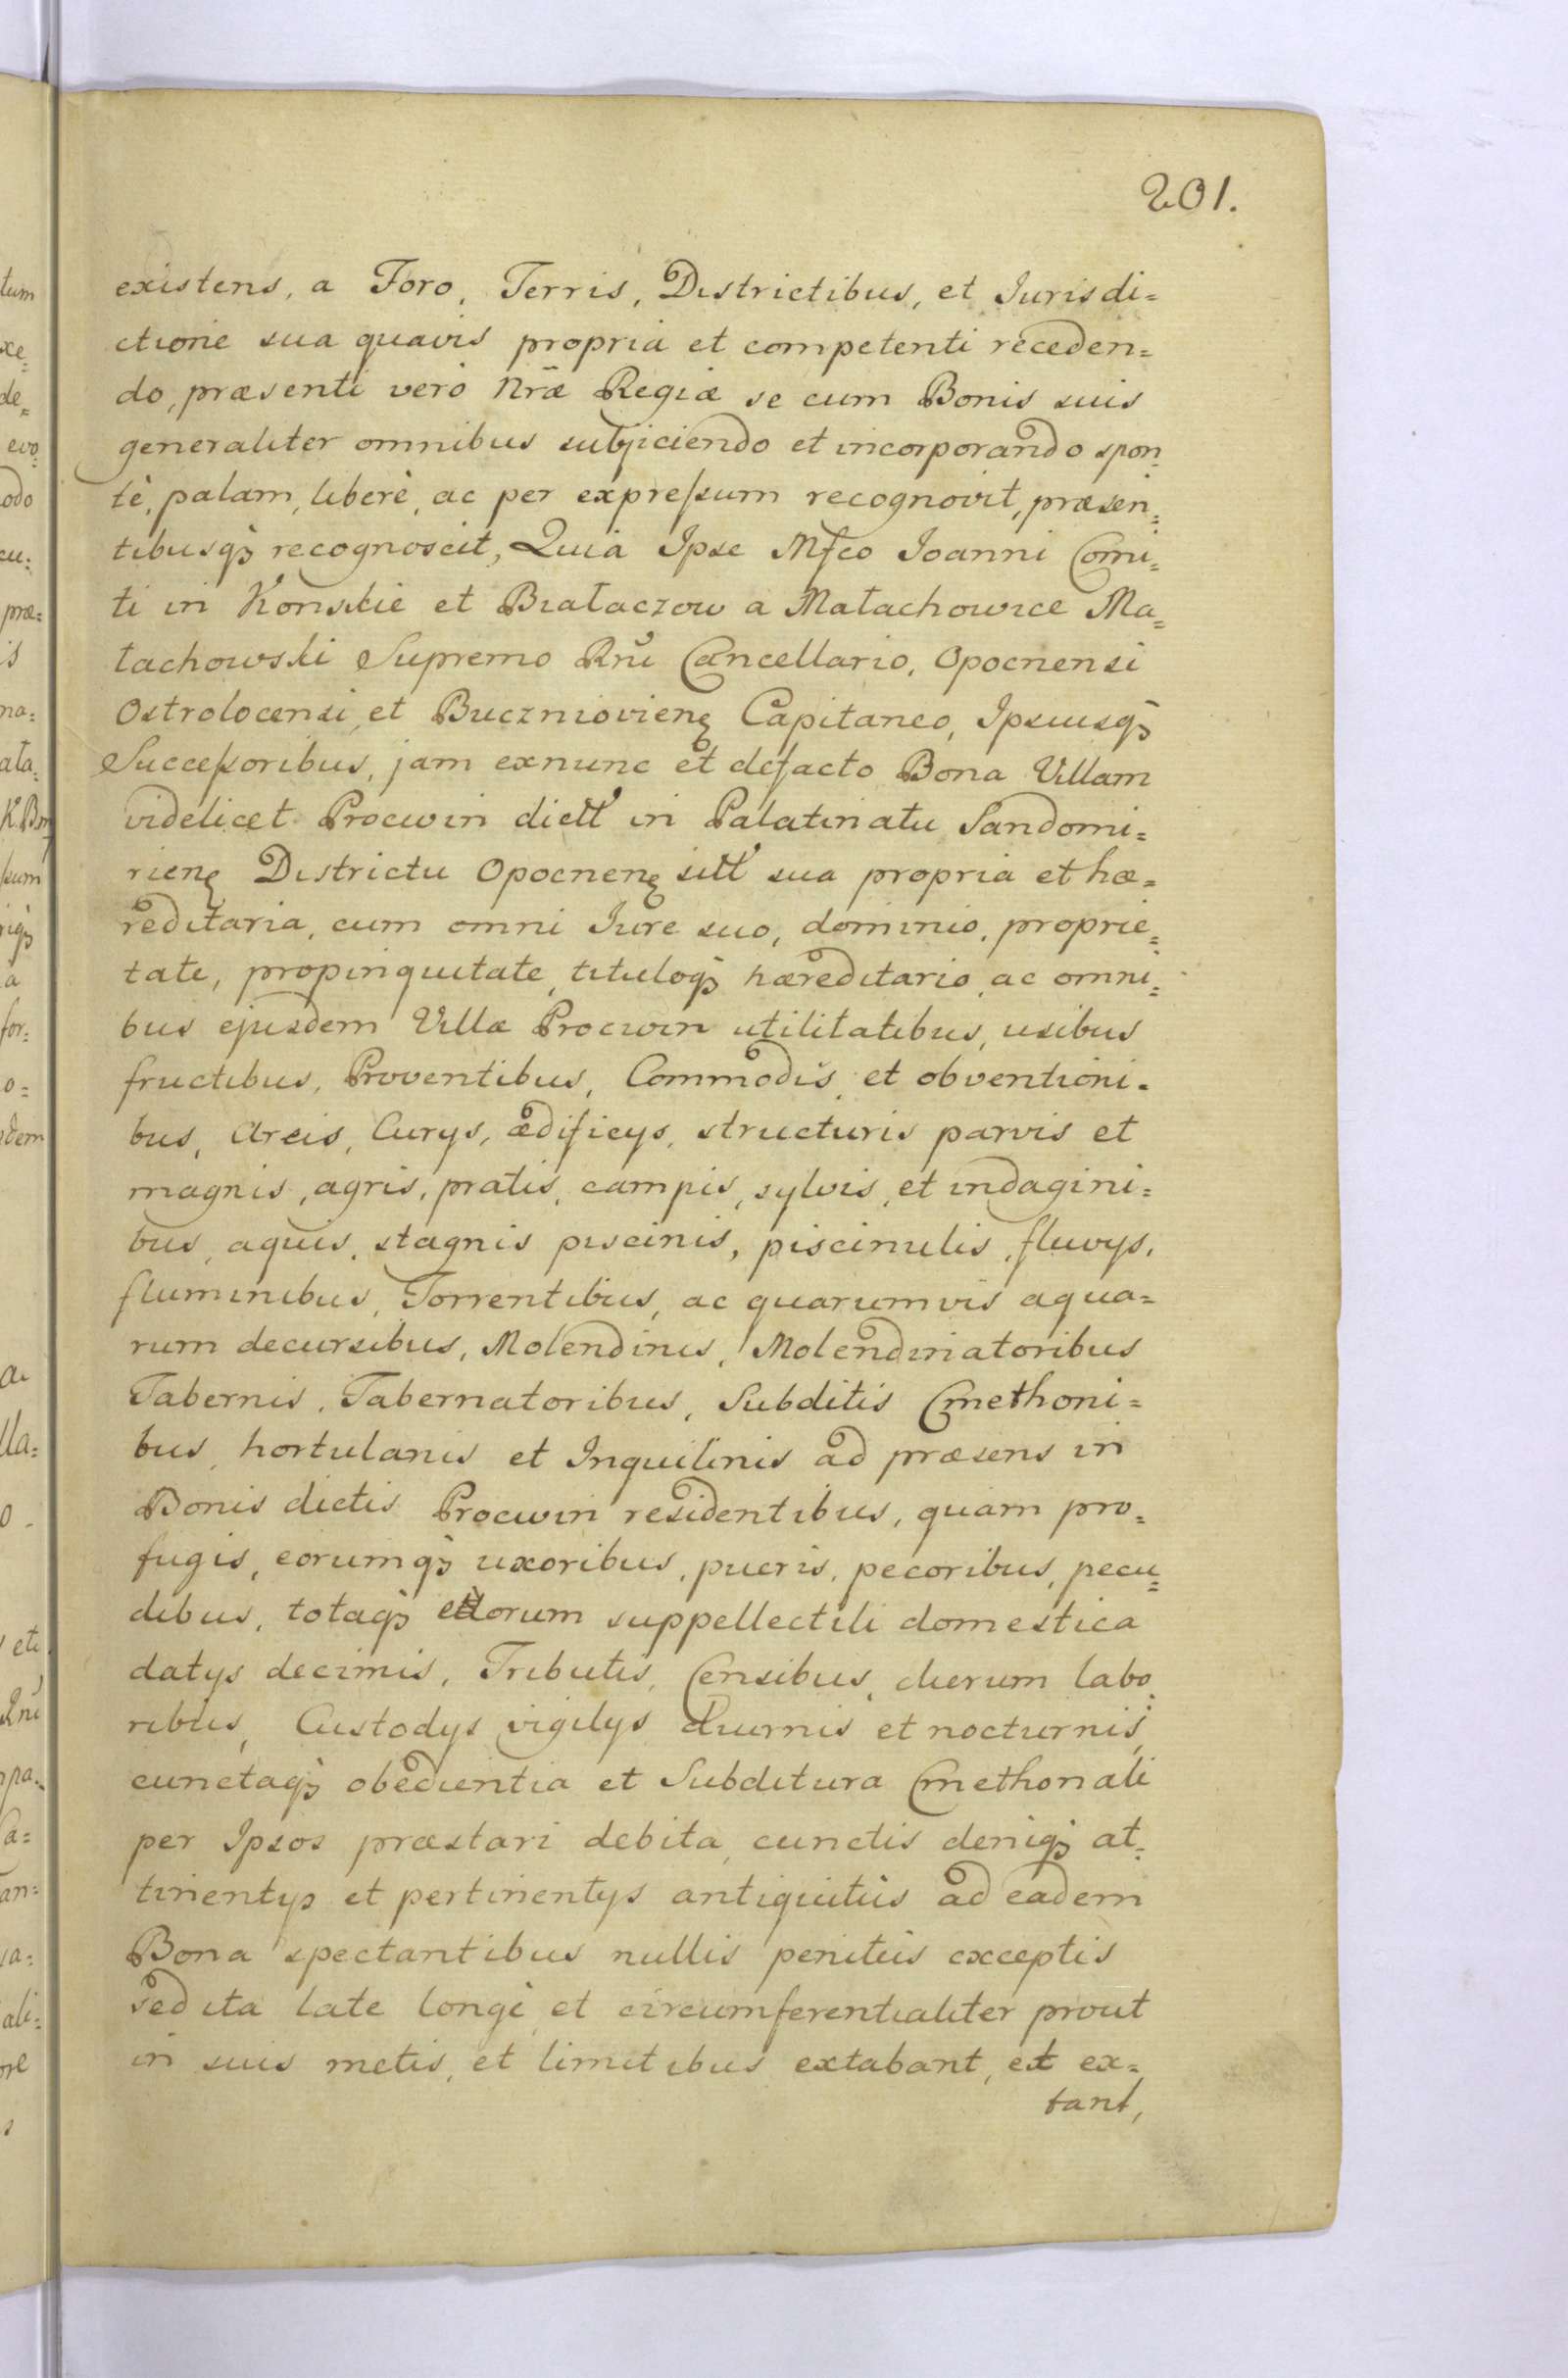 201.
existens, a Foro, Terris, Districtibus, et Jurisdi=
ctione sua quavis propria et competenti receden=
do, præsenti verò Nræ Regiæ se cum Bonis suis
generaliter omnibus subjiciendo et incorporando spon=
tè, palam, liberè, ac per expressum recognovit, præsen=
tibusq3 recognoscit, Quia Ipse Mfco Joanni Comi=
ti in Konskie et Białaczow a Małachowice Ma=
łachowski Supremo Rnĩ Cancellario, Opocnensi
Ostrolocensi, et Bucznioviens Capitaneo, Ipsiusq3
Successoribus, jam exnunc et defacto Bona Villam
videlicet Procwin dictt in Palatinatu Sandomi=
riens Districtu Opocnens sitt sua propria et hæ=
reditaria, cum omni Jure suo, dominio, proprie=
tate, propinquitate, tituloq3 hæreditario, ac omni=
bus ejusdem Villæ Procwin utilitatibus, usibus
fructibus, Proventibus, Commodis, et obventioni=
bus, Areis, Curys, ædificys, structuris parvis et
magnis, agris, pratis, campis, sylvis, et indagini=
bus, aquis, stagnis piscinis, piscinulis, fluvys,
fluminibus, Torrentibus, ac quarumvis aqua=
rum decursibus, Molendinis, Molendinatoribus
Tabernis, Tabernatoribus, Subditis Cmethoni=
bus, hortulanis et Inquilinis ad præsens in
Bonis dictis Procwin residentibus, quam pro=
fugis, eorumq3 uxoribus, pueris, pecoribus, pecu=
dibus, totaq3 eorum suppellectili domestica
datys decimis, Tributis, Censibus, dierum labo
ribus, Custodys vigilys diurnis et nocturnis,
cunctaq3 obedientia et Subditura Cmethonali
per Ipsos præstari debita, cunctis deniq3 at=
tinentys et pertinentys antiquitùs ad eadem
Bona spectantibus nullis penitùs exceptis
sed ita late longè, et circumferentialiter prout
in suis metis, et limitibus extabant, et ex=
tant,